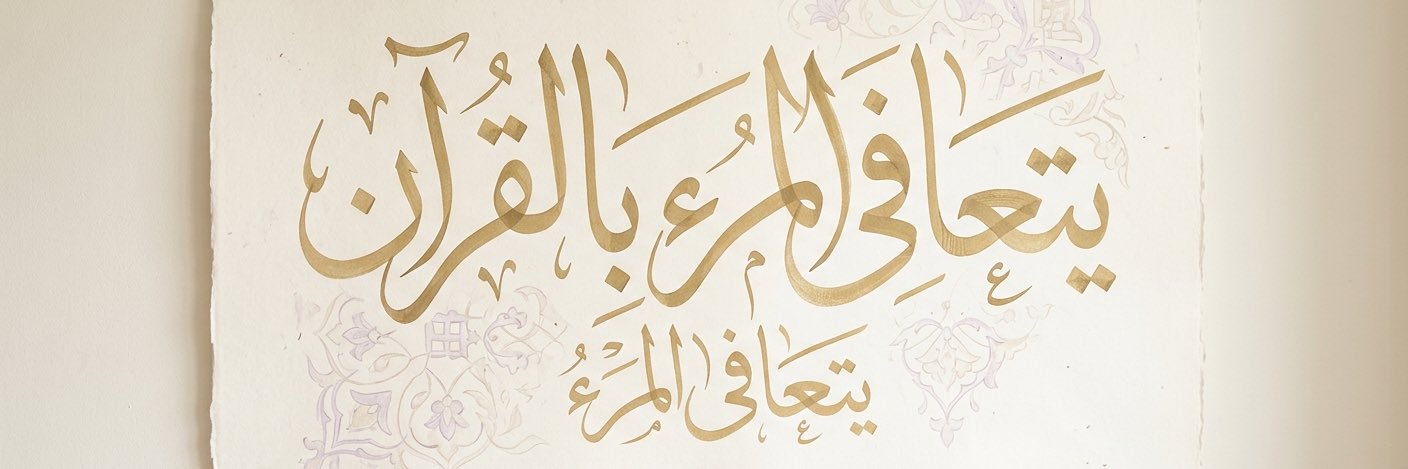 يتعافى المرء بالقرآن
يتعافى المرء